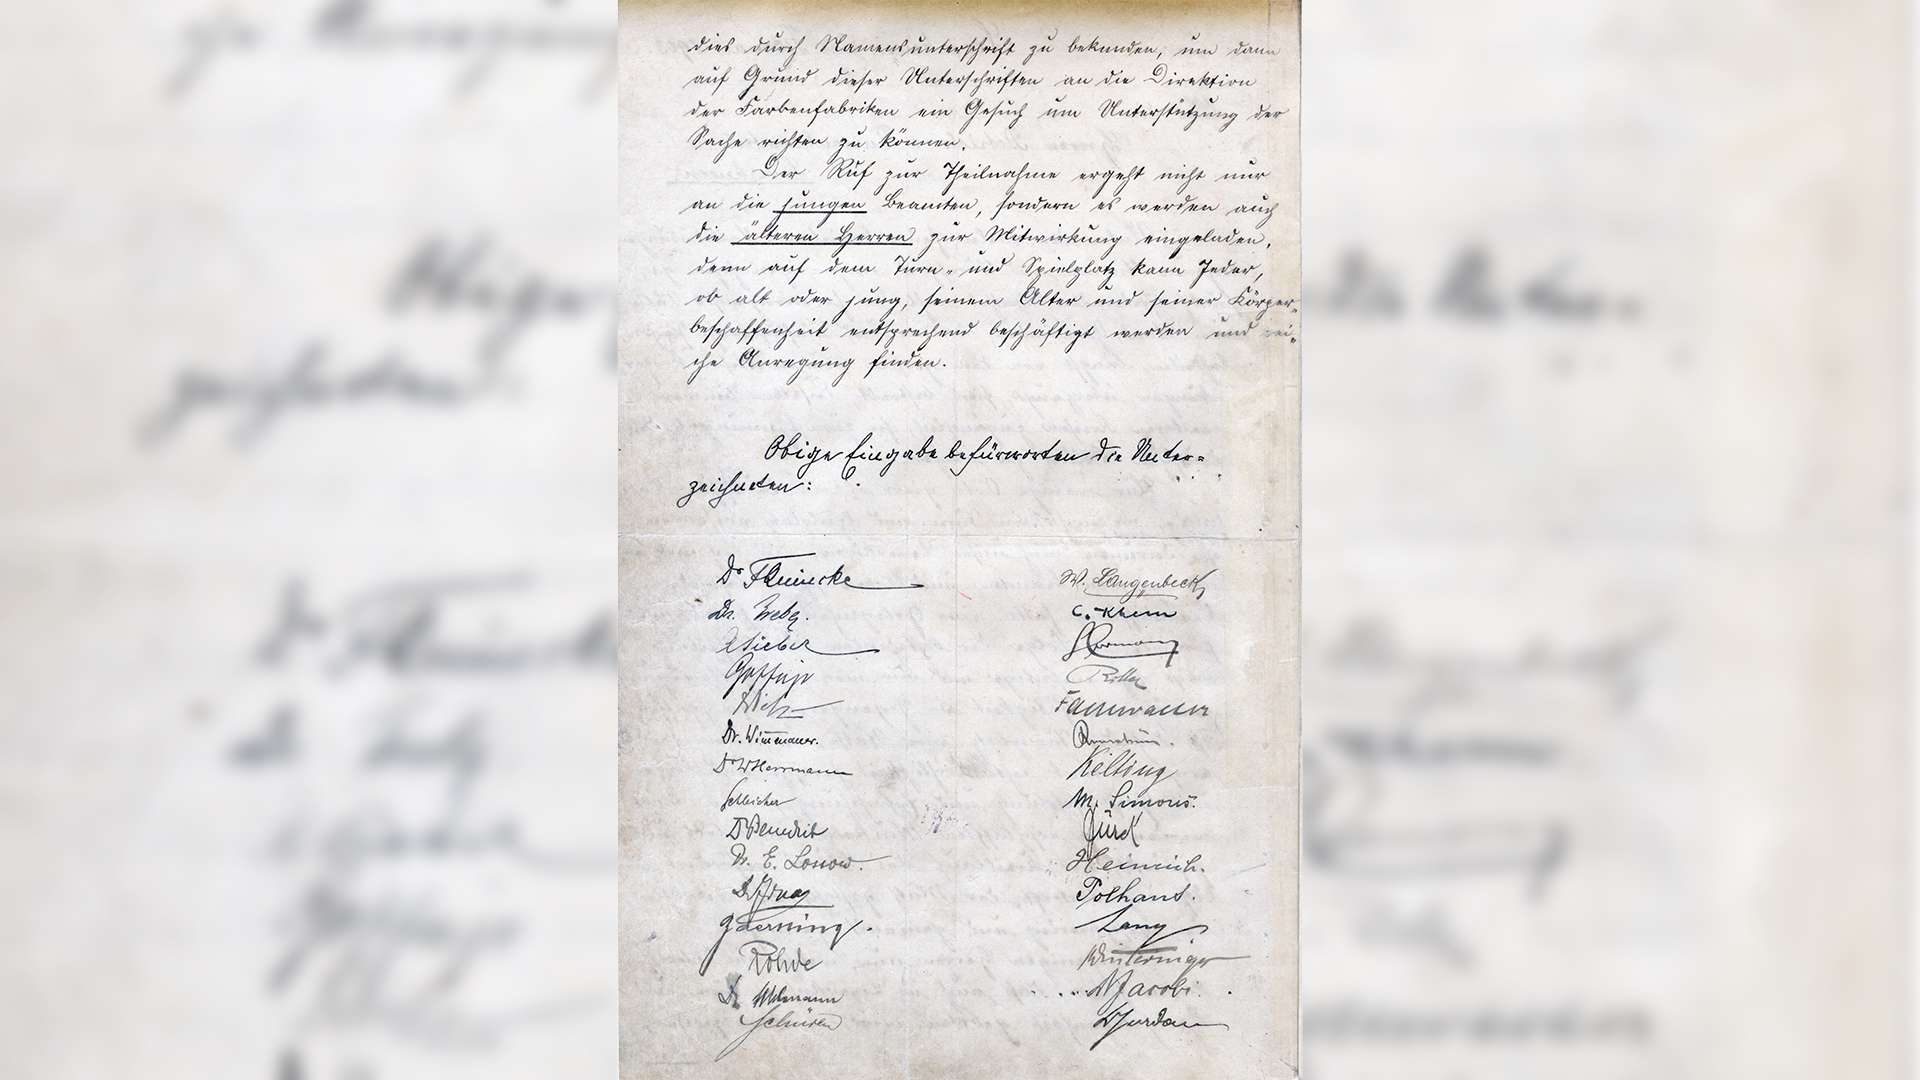 dies durch Namensunterschrift zu bekunden, um dann
auf Grund dieser Unterschriften an die Direktion
der Farbenfabriken ein Gesuch um Unterstützung der
Sache richten zu können.
Der Ruf zur Theilnahme ergeht nicht nur
an die jungen Beamten, sondern es werden auch
die älteren Herren zur Mitwirkung eingeladen,
denn auf dem Turn- und Spielplatz kann Jeder,
ob alt oder jung, seinem Alter und seiner Körper-
beschaffenheit entsprechend beschäftigt werden und rei-
che Anregung finden.
Obige Eingabe befürworten die Unter-
zeichneten:
Dr
Dr.
Dr. Wimmauer.
Dr W Herrmann
Schleicher
Dr Benedict
Dr. E. Lossow.
Rohde
Dr.
W. Langenbeck
Kelting
M. Simons.
Heinrich.
Polhaus.
Lang
Jacobi.
Jordan